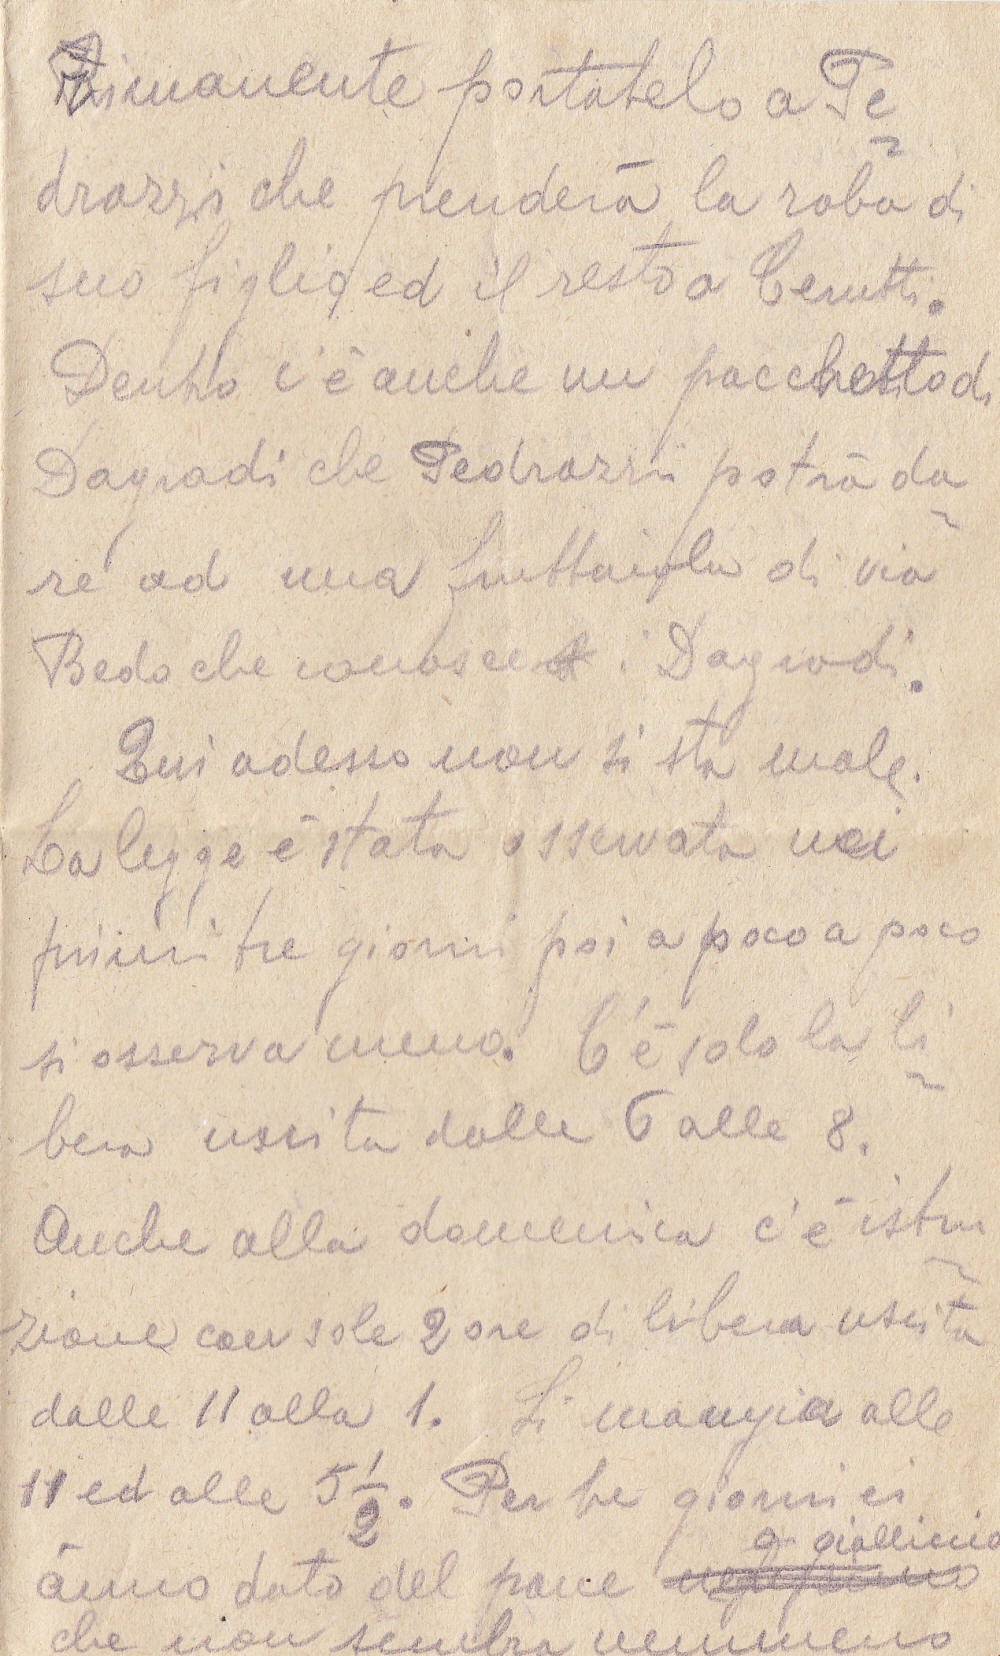 Rimanente portatelo a Pe
drazzi che prenderà la roba di
suo figlio ed il resto a Cerutti.
Dentro c'è anche un pacchetto di
Dagradi che Pedrazzi potrà da
re ad una fruttaiola di via
Beda che conosce i Dagradi.
Qui adesso non si sta male.
La legge è stata osservata nei
primi tre giorni poi a poco a poco
si osserva meno. C'è solo la li
bera uscita dalle 6 alle 8.
Anche alla domenica c'è istru
zione con sole 2 ore di libera uscita
dalle 11 alla 1. Si mangia alle
11 ed alle 5 1/2. Per tre giorni ci
ànno dato del pane gialliccio
che non sembra nemmeno